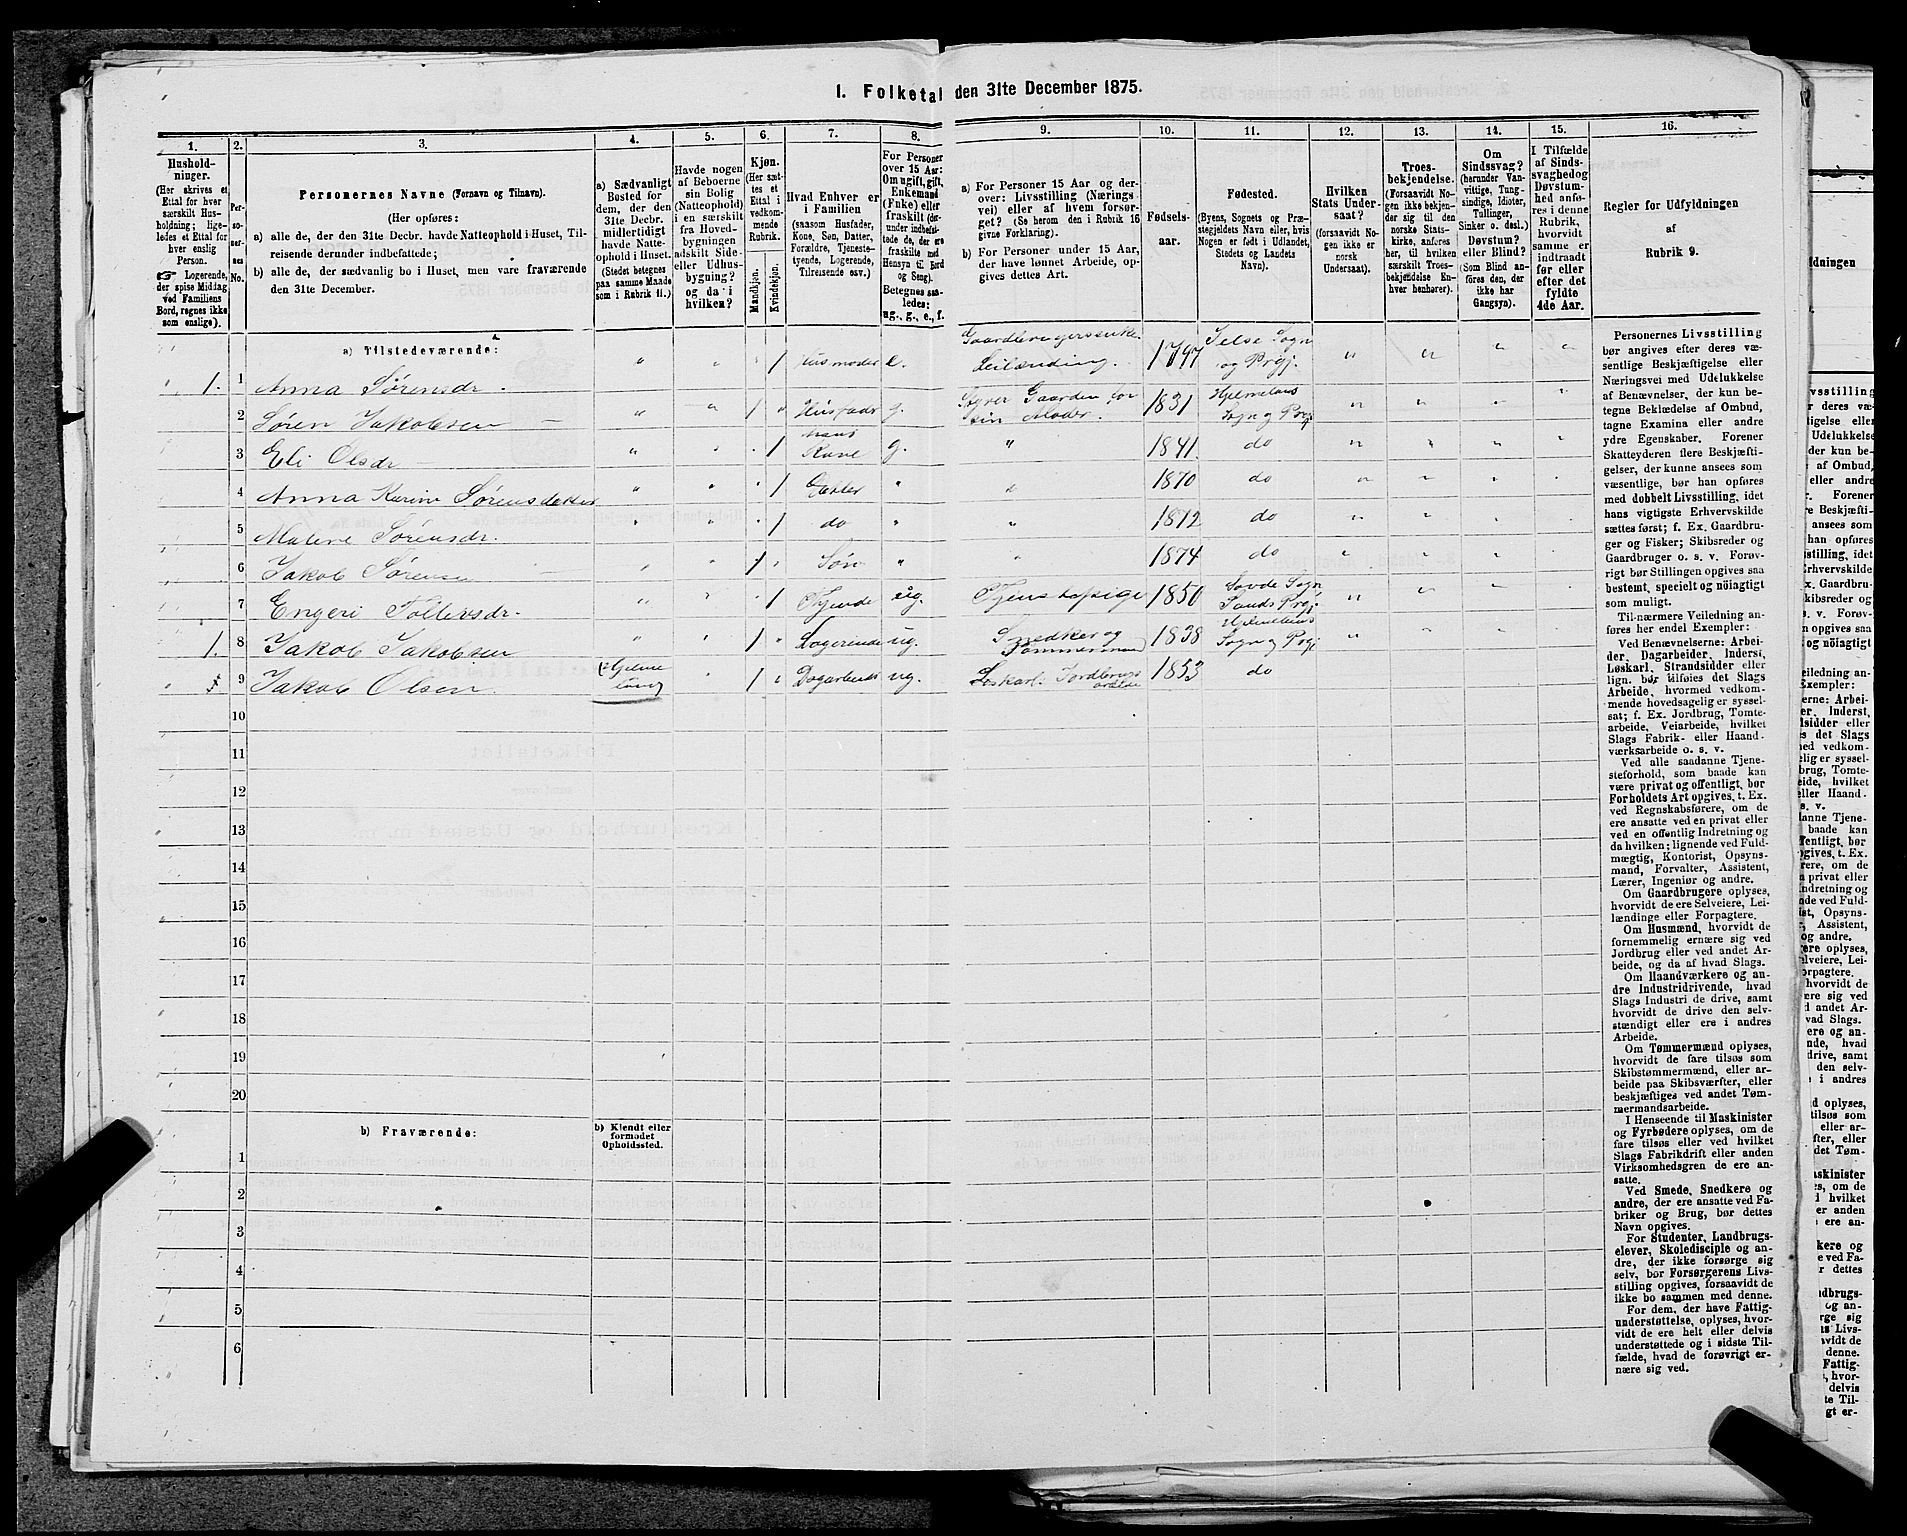 1. Folketal den 31te December 1875.
1. 2. 3. 4. 5. 6. 7. 8. 9. 10. 11. 12. 13. 14. 15. 16.
Hushold-
ninger.
(Her skrives et
Ettal for hver
særskilt Hus-
holdning; lige-
ledes et Ettal for
hver enslig
Person.
☞ Logerende,
der spise Middag
ved Familiens
Bord, regnes ikke
som enslige).
Per-
so-
ner-
nes
No.
Personernes Navne (Fornavn og Tilnavn).
(Her opføres:
a) alle de, der den 31te Decbr. havde Natteophold i Huset, Til-
reisende derunder indbefattede;
b) alle de, der sædvanlig bo i Huset, men vare fraværende
den 31te December.
a) Sædvanligt
Bosted for
dem, der den
31te Decbr.
midlertidigt
havde Natte-
ophold i Huset.
(Stedet betegnes
paa samme Maade
som i Rubrik 11.)
Havde nogen
af Beboerne
sin Bolig
(Natteophold)
i en særskilt
fra Hoved-
bygningen
adskilt Side-
eller Udhus-
bygning?
og da i
hvilken?
Kjøn.
(Her sæt-
tes et
Ettal i
vedkom-
mende
Rubrik.
Mandkjøn.
Kvindekjøn.
Hvad Enhver er
i Familien
(saasom Husfader,
Kone, Søn, Datter,
Forældre, Tjeneste-
tyende, Logerende,
Tilreisende osv.)
For Personer
over 15 Aar:
Om ugift, gift,
Enkemand
(Enke) eller
fraskilt (der-
under indbefat-
tede de, der ere
fraskilte med
Hensyn til Bord
og Seng).
Betegnes saa-
ledes:
ug., g., e., f.
a) For Personer 15 Aar og der-
over: Livsstilling (Nærings-
vei) eller af hvem forsør-
get? (Se herom den i Rubrik 16
givne Forklaring).
b) For Personer under 15 Aar,
der have lønnet Arbeide, op-
gives dettes Art.
Fødsels-
aar.
Fødested.
(Byens, Sognets og Præ-
stegjeldets Navn eller, hvis
Nogen er født i Udlandet,
Stedets og Landets
Navn).
Hvilken
Stats Under-
saat?
(forsaavidt No-
gen ikke er
norsk
Undersaat).
Troes-
bekjendelse.
(Forsaavidt No-
gen ikke bekjen-
der sig til den
norske Stats-
kirke, anføres
her, til hvilken
særskilt Troes-
bekjendelse En-
hver henhører).
Om
Sindssvag?
(herunder Van-
vittige, Tung-
sindige, Idioter,
Tullinger,
Sinker o. desl.)
Døvstum?
eller Blind?
(Som Blind an-
føres den, der
ikke har
Gangsyn).
I Tilfælde
af Sinds-
svaghed og
Døvstum-
hed anfø-
res i denne
Rubrik,
hvorvidt
samme er
indtraadt
før eller
efter det
fyldte
4de Aar.
Regler for Udfyldningen
af
Rubrik 9.
a) Tilstedeværende:
1. 1 Anna Sørensdr. " " 1 Husmoder e. Gaardbrugerenke Leilænding. 1797 Jelse Sogn og Prgj. " " " "
2 Søren Jakobsen " " 1 " Husfader g. Styrer Gaarden for sin Moder. 1831 Hjelmelands Sogn og Prgj " " " "
3 Eli Olsdr " " 1 hans Kone g. " 1841 do " " " "
4 Anna Karine Sørensdatter " " 1 Datter " " 1870 do " " " "
5 Malene Sørensdr. " " 1 do " " 1872 do " " " "
6 Jakob Sørensen " " 1 " Søn " " 1874 do " " " "
7 Engeri Tollevsdr. " " 1 Tjende ug. Tjenstepige 1850 Sovde Sogn Sands Prgj. " " " "
1. 8 Jakob Jakobsen " " 1 " Logerende ug. Snedker og Tømmermand 1838 Hjelmelands Sogn og Prgj " " " "
9 Jakob Olsen 1 " ug. Løskarl. 1853 do
10
11
12
13
14
15
16
17
18
19
20
b) Fraværende:
b) Kjendt eller
formodet
Opholdssted.
1
2
3
4
5
6
Personernes Livsstilling
bør angives efter deres væ-
sentlige Beskjæftigelse eller
Næringsvei med Udelukkelse
af Benævnelser, der kun be-
tegne Beklædelse af Ombud,
tagne Examina eller andre
ydre Egenskaber. Forener
Skatteyderen flere Beskjæfti-
gelser, der kunne ansees som
væsentlige, bør han opføres
med dobbelt Livsstilling, idet
hans vigtigste Erhvervskilde
sættes først; f. Ex. Gaardbru-
ger og Fisker; Skibsreder og
Gaardbruger o. s. v. Forøv-
rigt bør Stillingen opgives saa
bestemt, specielt og nøiagtigt
som muligt.
Til nærmere Veiledning an-
føres her endel Exempler:
Ved Benævnelserne: Arbei-
der, Dagarbeider, Inderst,
Løskarl, Strandsidder eller
lign. bør tilføies det Slags
Arbeide, hvormed vedkom-
mende hovedsagelig er syssel-
sat; f. Ex. Jordbrug, Tomte-
arbeide, Veiarbeide, hvilket
Slags Fabrik- eller Haand-
værksarbeide o. s. v.
Ved alle saadanne Tjene-
steforhold, som baade kan
være privat og offentligt, bør
Forholdets Art opgives, t. Ex.
ved Regnskabsførere, om de
ere ansatte ved en privat eller
ved en offentlig Indretning og
da hvilken; lignende ved Fuld-
mægtig, Kontorist, Opsyns-
mand, Forvalter, Assistent,
Lærer, Ingeniør og andre.
Om Gaardbrugere oplyses,
hvorvidt de ere Selveiere, Lei-
lændinge eller Forpagtere.
Om Husmænd, hvorvidt de
fornemmelig ernære sig ved
Jordbrug eller ved andet Ar-
beide, og da af hvad Slags.
Om Haandværkere og an-
dre Industridrivende, hvad
Slags Industri de drive, samt
hvorvidt de drive den selv-
stændigt eller ere i andres
Arbeide.
Om Tømmermænd oplyses,
hvorvidt de fare tilsøs som
Skibstømmermænd, eller ar-
beide paa Skibsværfter, eller
beskjæftiges ved andet Tøm-
mermandsarbeide.
I Henseende til Maskinister
og Fyrbødere oplyses, om de
fare tilsøs eller ved hvilket
Slags Fabrikdrift eller anden
Virksomhedsgren de ere an-
satte.
Ved Smede, Snedkere og
andre, der ere ansatte ved Fa-
briker og Brug, bør dettes
Navn opgives.
For Studenter, Landbrugs-
elever, Skoledisciple og an-
dre, der ikke forsørge sig
selv, bør Forsørgerens Livs-
stilling opgives, forsaavidt de
ikke bo sammen med denne.
For dem, der have Fattig-
understøttelse, oplyses, hvor-
vidt de ere helt eller delvis
understøttede og i sidste Til-
fælde, hvad de forøvrigt er-
nære sig ved.